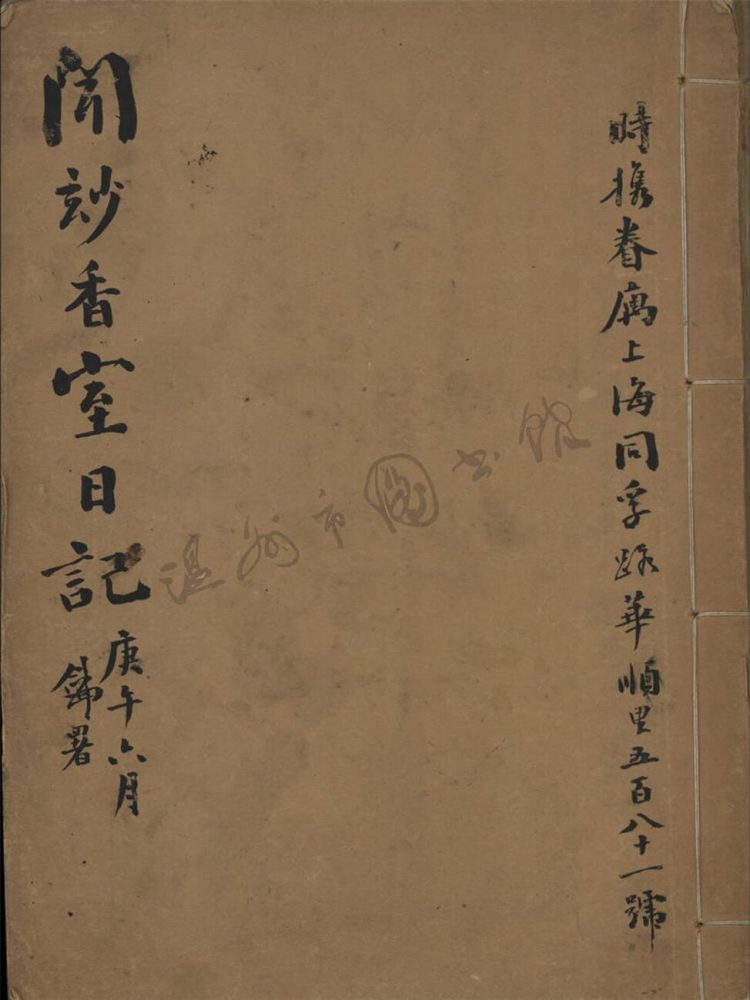 時攜眷寓上海同孚路華順里五百八十一號
聞玅香室日記
庚午六月
鏽署
温州市圖书馆